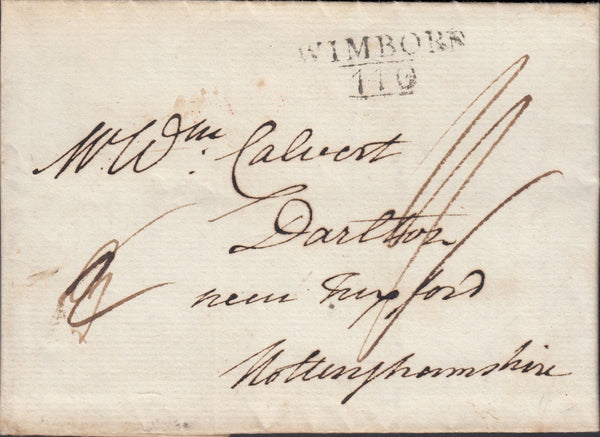 WIMBORN
110
Mr. Wm. Calvert
Darlton
near Tuxford
Nottinghamshire